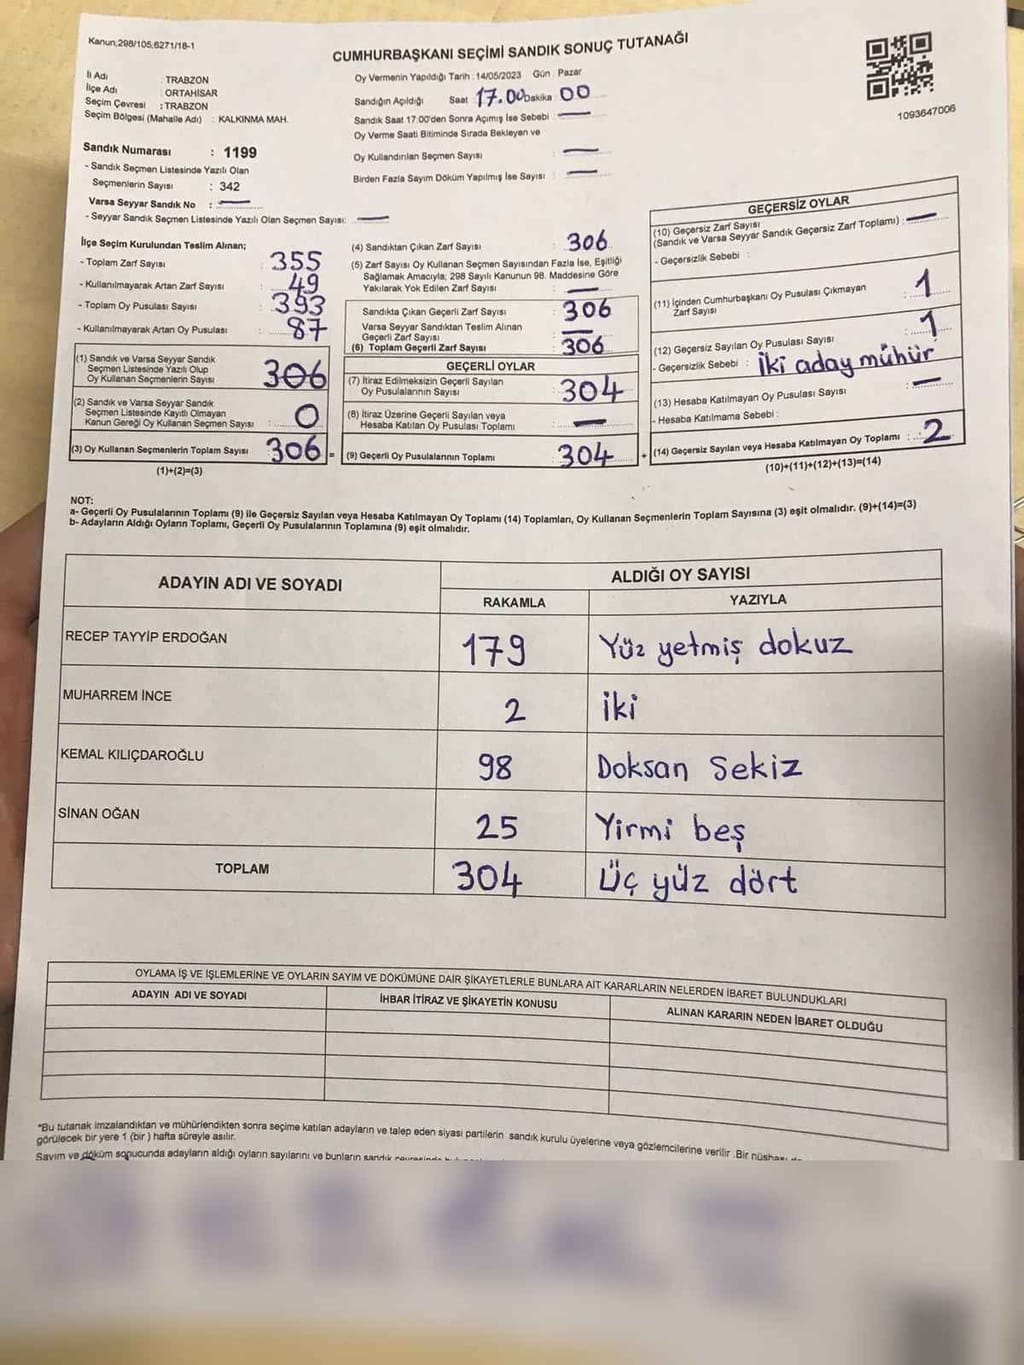 Kanun;298/105;6271/18-1
CUMHURBAŞKANI SEÇİMİ SANDIK SONUÇ TUTANAĞI
İl Adı : TRABZON
İlçe Adı : ORTAHİSAR
Seçim Çevresi : TRABZON
Seçim Bölgesi (Mahalle Adı) : KALKINMA MAH.
Sandık Numarası : 1199
- Sandık Seçmen Listesinde Yazılı Olan
Seçmenlerin Sayısı : 342
Varsa Seyyar Sandık No :
- Seyyar Sandık Seçmen Listesinde Yazılı Olan Seçmen Sayısı:
Oy Vermenin Yapıldığı Tarih : 14/05/2023 Gün Pazar
Sandığın Açıldığı Saat 17.00 Dakika 00
Sandık Saat 17:00'den Sonra Açımış İse Sebebi :
Oy Verme Saati Bitiminde Sırada Bekleyen ve
Oy Kullandırılan Seçmen Sayısı :
Birden Fazla Sayım Döküm Yapılmış İse Sayısı :
1093647006
İlçe Seçim Kurulundan Teslim Alınan;
- Toplam Zarf Sayısı : 355
- Kullanılmayarak Artan Zarf Sayısı : 49
- Toplam Oy Pusulası Sayısı : 393
- Kullanılmayarak Artan Oy Pusulası : 87
(1) Sandık ve Varsa Seyyar Sandık
Seçmen Listesinde Yazılı Olup
Oy Kullanan Seçmenlerin Sayısı : 306
(2) Sandık ve Varsa Seyyar Sandık
Seçmen Listesinde Kayıtlı Olmayan
Kanun Gereği Oy Kullanan Seçmen Sayısı : 0
(3) Oy Kullanan Seçmenlerin Toplam Sayısı : 306 =
(1)+(2)=(3)
(4) Sandıktan Çıkan Zarf Sayısı : 306
(5) Zarf Sayısı Oy Kullanan Seçmen Sayısından Fazla İse, Eşitliği
Sağlamak Amacıyla; 298 Sayılı Kanunun 98. Maddesine Göre
Yakılarak Yok Edilen Zarf Sayısı :
Sandıkta Çıkan Geçerli Zarf Sayısı : 306
Varsa Seyyar Sandıktan Teslim Alınan
Geçerli Zarf Sayısı :
(6) Toplam Geçerli Zarf Sayısı : 306
GEÇERLİ OYLAR
(7) İtiraz Edilmeksizin Geçerli Sayılan
Oy Pusulalarının Sayısı : 304
(8) İtiraz Üzerine Geçerli Sayılan veya
Hesaba Katılan Oy Pusulası Toplamı :
(9) Geçerli Oy Pusulalarının Toplamı : 304 +
GEÇERSİZ OYLAR
(10) Geçersiz Zarf Sayısı
(Sandık ve Varsa Seyyar Sandık Geçersiz Zarf Toplamı) :
- Geçersizlik Sebebi :
(11) İçinden Cumhurbaşkanı Oy Pusulası Çıkmayan
Zarf Sayısı : 1
(12) Geçersiz Sayılan Oy Pusulası Sayısı : 1
- Geçersizlik Sebebi : İki aday mühür
(13) Hesaba Katılmayan Oy Pusulası Sayısı :
- Hesaba Katılmama Sebebi :
(14) Geçersiz Sayılan veya Hesaba Katılmayan Oy Toplamı : 2
(10)+(11)+(12)+(13)=(14)
NOT:
a- Geçerli Oy Pusulalarının Toplamı (9) ile Geçersiz Sayılan veya Hesaba Katılmayan Oy Toplamı (14) Toplamları, Oy Kullanan Seçmenlerin Toplam Sayısına (3) eşit olmalıdır. (9)+(14)=(3)
b- Adayların Aldığı Oyların Toplamı, Geçerli Oy Pusulalarının Toplamına (9) eşit olmalıdır.
ADAYIN ADI VE SOYADI ALDIĞI OY SAYISI
RAKAMLA YAZIYLA
RECEP TAYYİP ERDOĞAN 179 Yüz yetmiş dokuz
MUHARREM İNCE 2 İki
KEMAL KILIÇDAROĞLU 98 Doksan Sekiz
SİNAN OĞAN 25 Yirmi beş
TOPLAM 304 Üç yüz dört
OYLAMA İŞ VE İŞLEMLERİNE VE OYLARIN SAYIM VE DÖKÜMÜNE DAİR ŞİKAYETLERLE BUNLARA AİT KARARLARIN NELERDEN İBARET BULUNDUKLARI
ADAYIN ADI VE SOYADI İHBAR İTİRAZ VE ŞİKAYETİN KONUSU ALINAN KARARIN NEDEN İBARET OLDUĞU
*Bu tutanak imzalandıktan ve mühürlendikten sonra seçime katılan adayların ve talep eden siyasi partilerin sandık kurulu üyelerine veya gözlemcilerine verilir .Bir nüshası
görülecek bir yere 1 (bir ) hafta süreyle asılır.
Sayım ve döküm sonucunda adayların aldığı oyların sayılarını ve bunların sandık